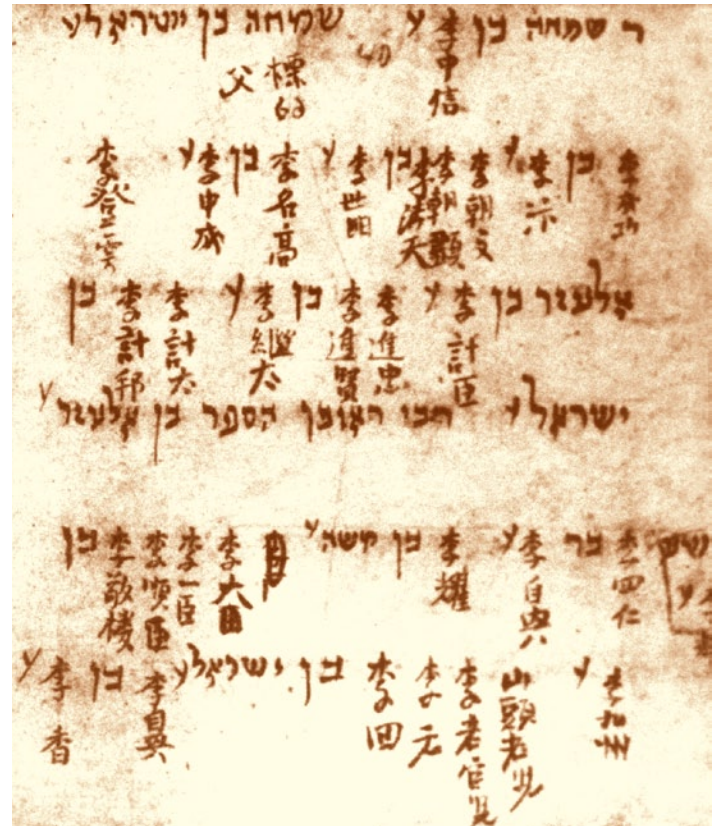 ר שמחה בן 李中信 ע שמחה בן ישראל ע
父
בן 李示 ע 李朝文 李朝顯 בן ע 李名高 בן 李中成 ע 李登雲
אלעזר בן 李計臣 ע 李進忠 李進賢 בן 李繼太 ע 李計太 李計邦 בן
ישראל ע רבי ראובן הספר בן אלעזר ע
李四仁 בר 李自興 ע 李耀 בן משה ע 李一臣 李順臣 李敬樓 בן
李九州 ע 山頭老兒 李老官兒 李元 李回 בן ישראל ע בן 李香 ע